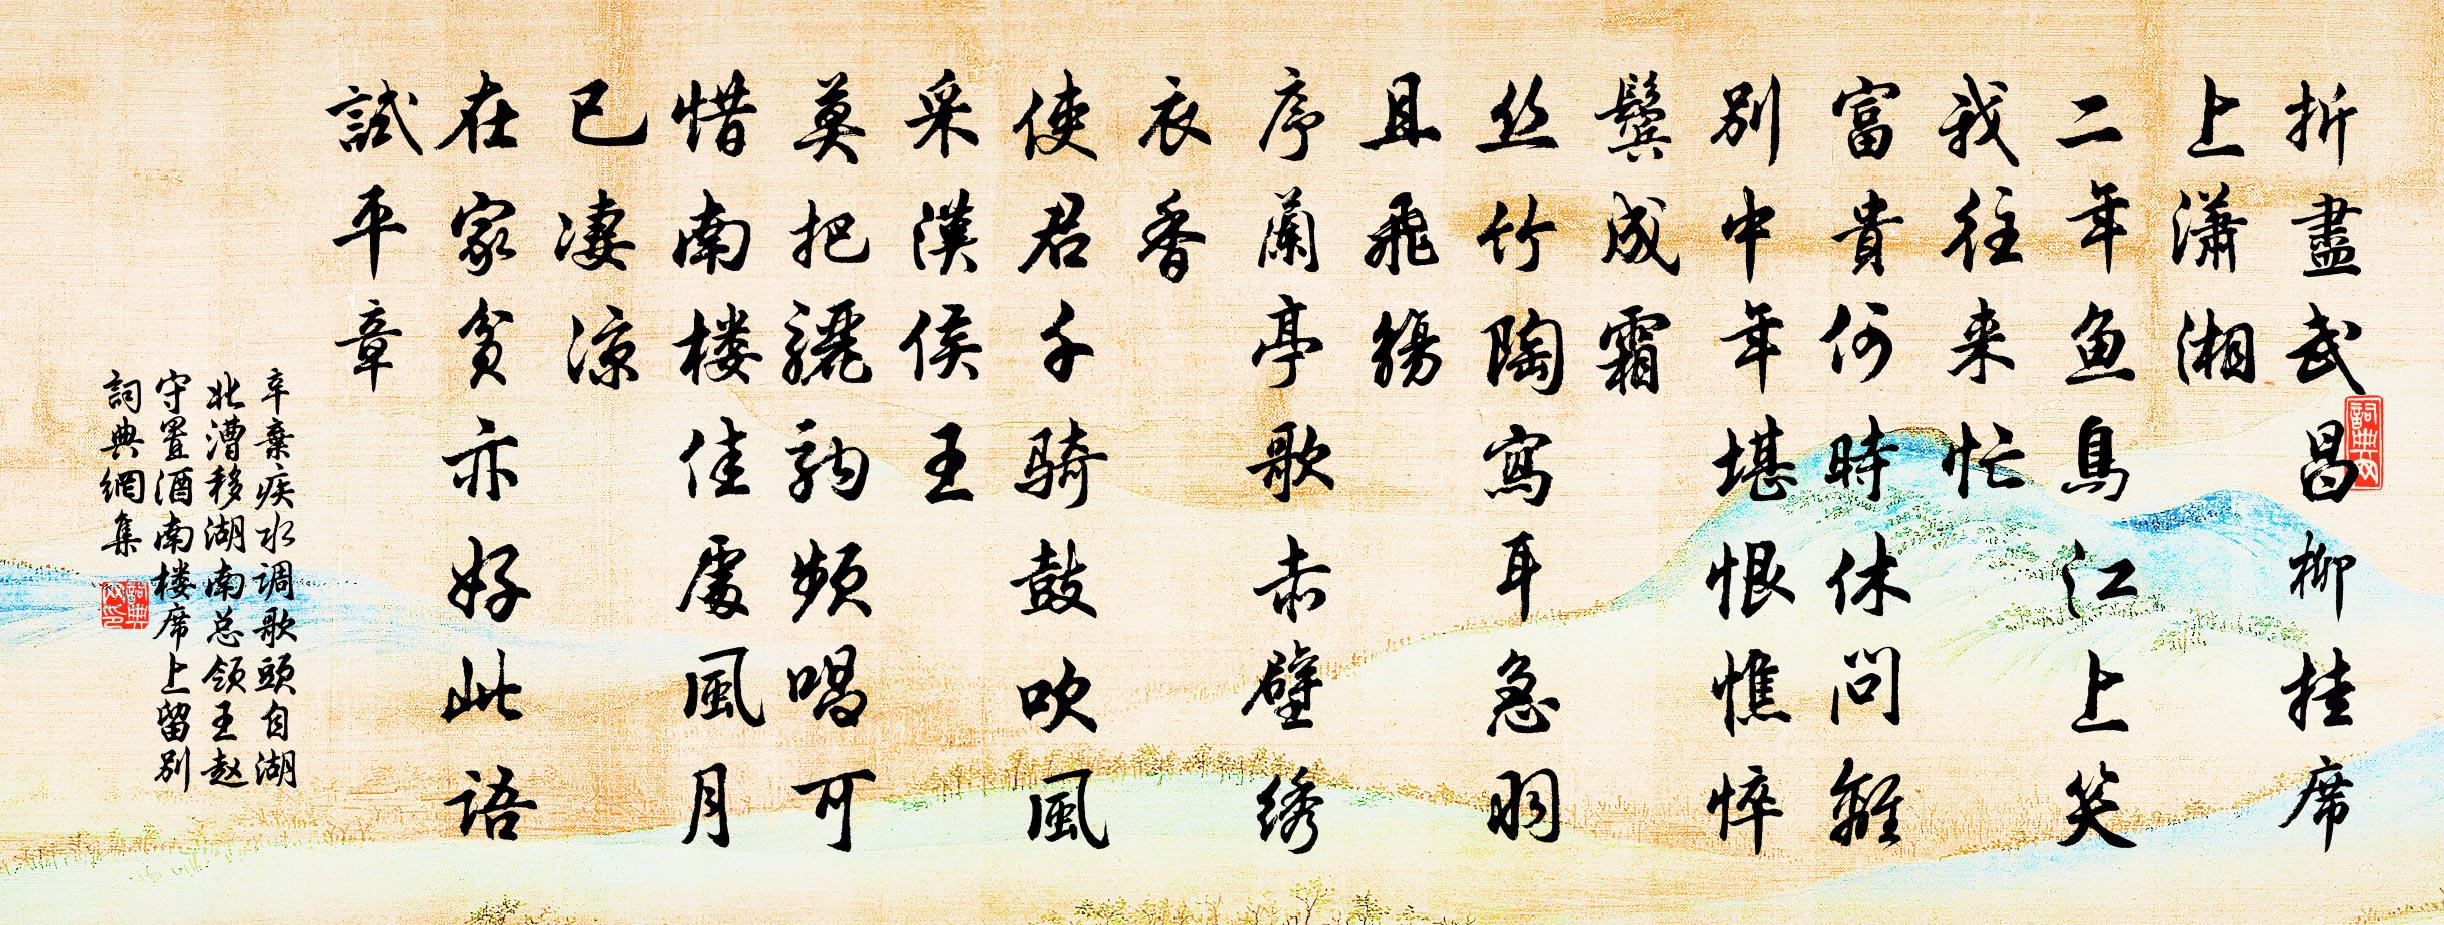 折盡武昌柳挂席
上瀟湘
二年魚鳥江上笑
我往来忙
富貴何時休問離
別中年堪恨憔悴
鬓成霜
丝竹陶寫耳急羽
且飛觴
序蘭亭歌赤壁绣
衣香
使君千騎鼓吹風
采漢侯王
莫把驪駒頻唱可
惜南楼佳處風月
已凄凉
在家貧亦好此語
試平章
辛棄疾水调歌頭自湖
北漕移湖南总领王赵
守置酒南楼席上留別
詞典網集
詞典网
詞典网印